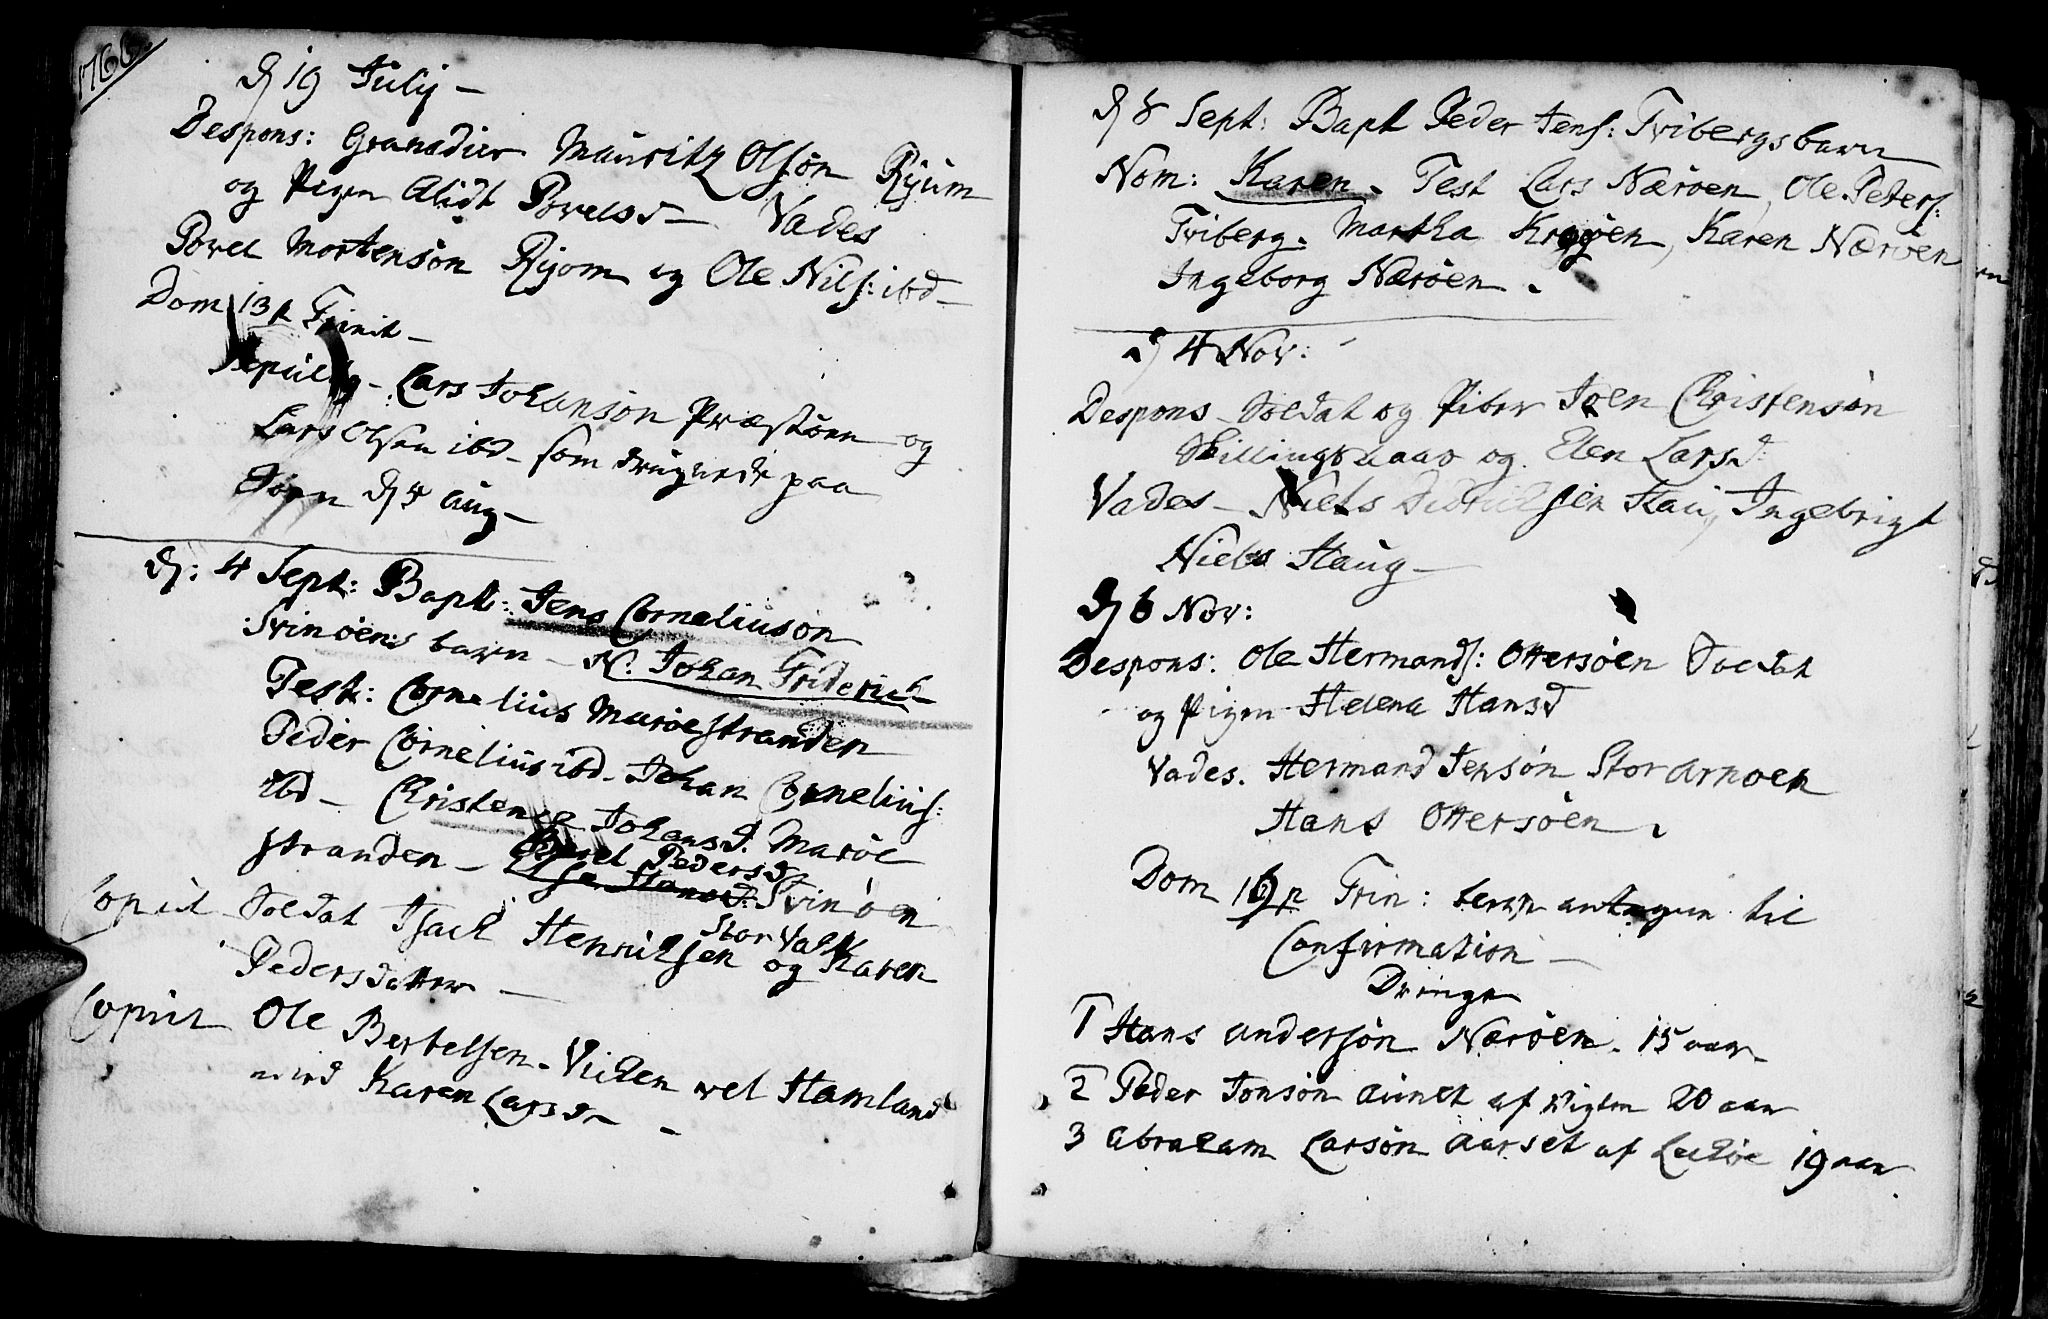 1766
D 19 Julij -
Despons: Granadier Mauritz Olsøn Ryum
og Pigen Alidt Povelsd - Vades
Povel Mortensøn Ryom og Ole Nils: ibd -
Dom 13 p Trinit -
Sepult - Lars Johansøn Præstøen og
Lars Olsen ibd - som drugnede paa
D 4 Aug -
D: 4 Sept: Bapt: Jens Corneliusøn
Svinøens barn - N. Johan Friderich
Test: Cornelius Marøestranden
Peder Cornelius ibd - Johan Cornelius:
ibd - Christen Johansd. Marøe
stranden - Pedersd
Else Hansd: Svinøen
Copul Soldat Isach Henrichsen og Karen
Stor Vahl
Pedersdatter -
Copul Ole Bertelsen - Vichen vel Hamland
med Karen Larsd -
D 8 Sept: Bapt Peder Jens: Tvibergs barn
Nom: Karen - Test Lars Nærøen, Ole Peters:
Tviberg. Martha Krøyøen, Karen Nærøen
Ingeborg Nærøen.
D 4 Nov:
Despons - Soldat og Piber Joen Christensøn
Skillingsaas og Elen Larsd:
Vades - Niels Didrichsen Hau, Ingebrigt
Niels Haug -
D 6 Nov:
Despons: Ole Hermands: Ottersøen Soldat
og Pigen Helena Hansd
Vades. Hermand Jensøn Storarnøen
Hans Ottersøen.
Dom 19 p Trin: antagen til
Confirmation -
Drenge
1 Hans Andersøn Nærøen. 15 aar
2 Peder Jonsøn Aunet af Vigten 20 aar
3 Abraham Larsøn Aarset af Lechøe 19 aar